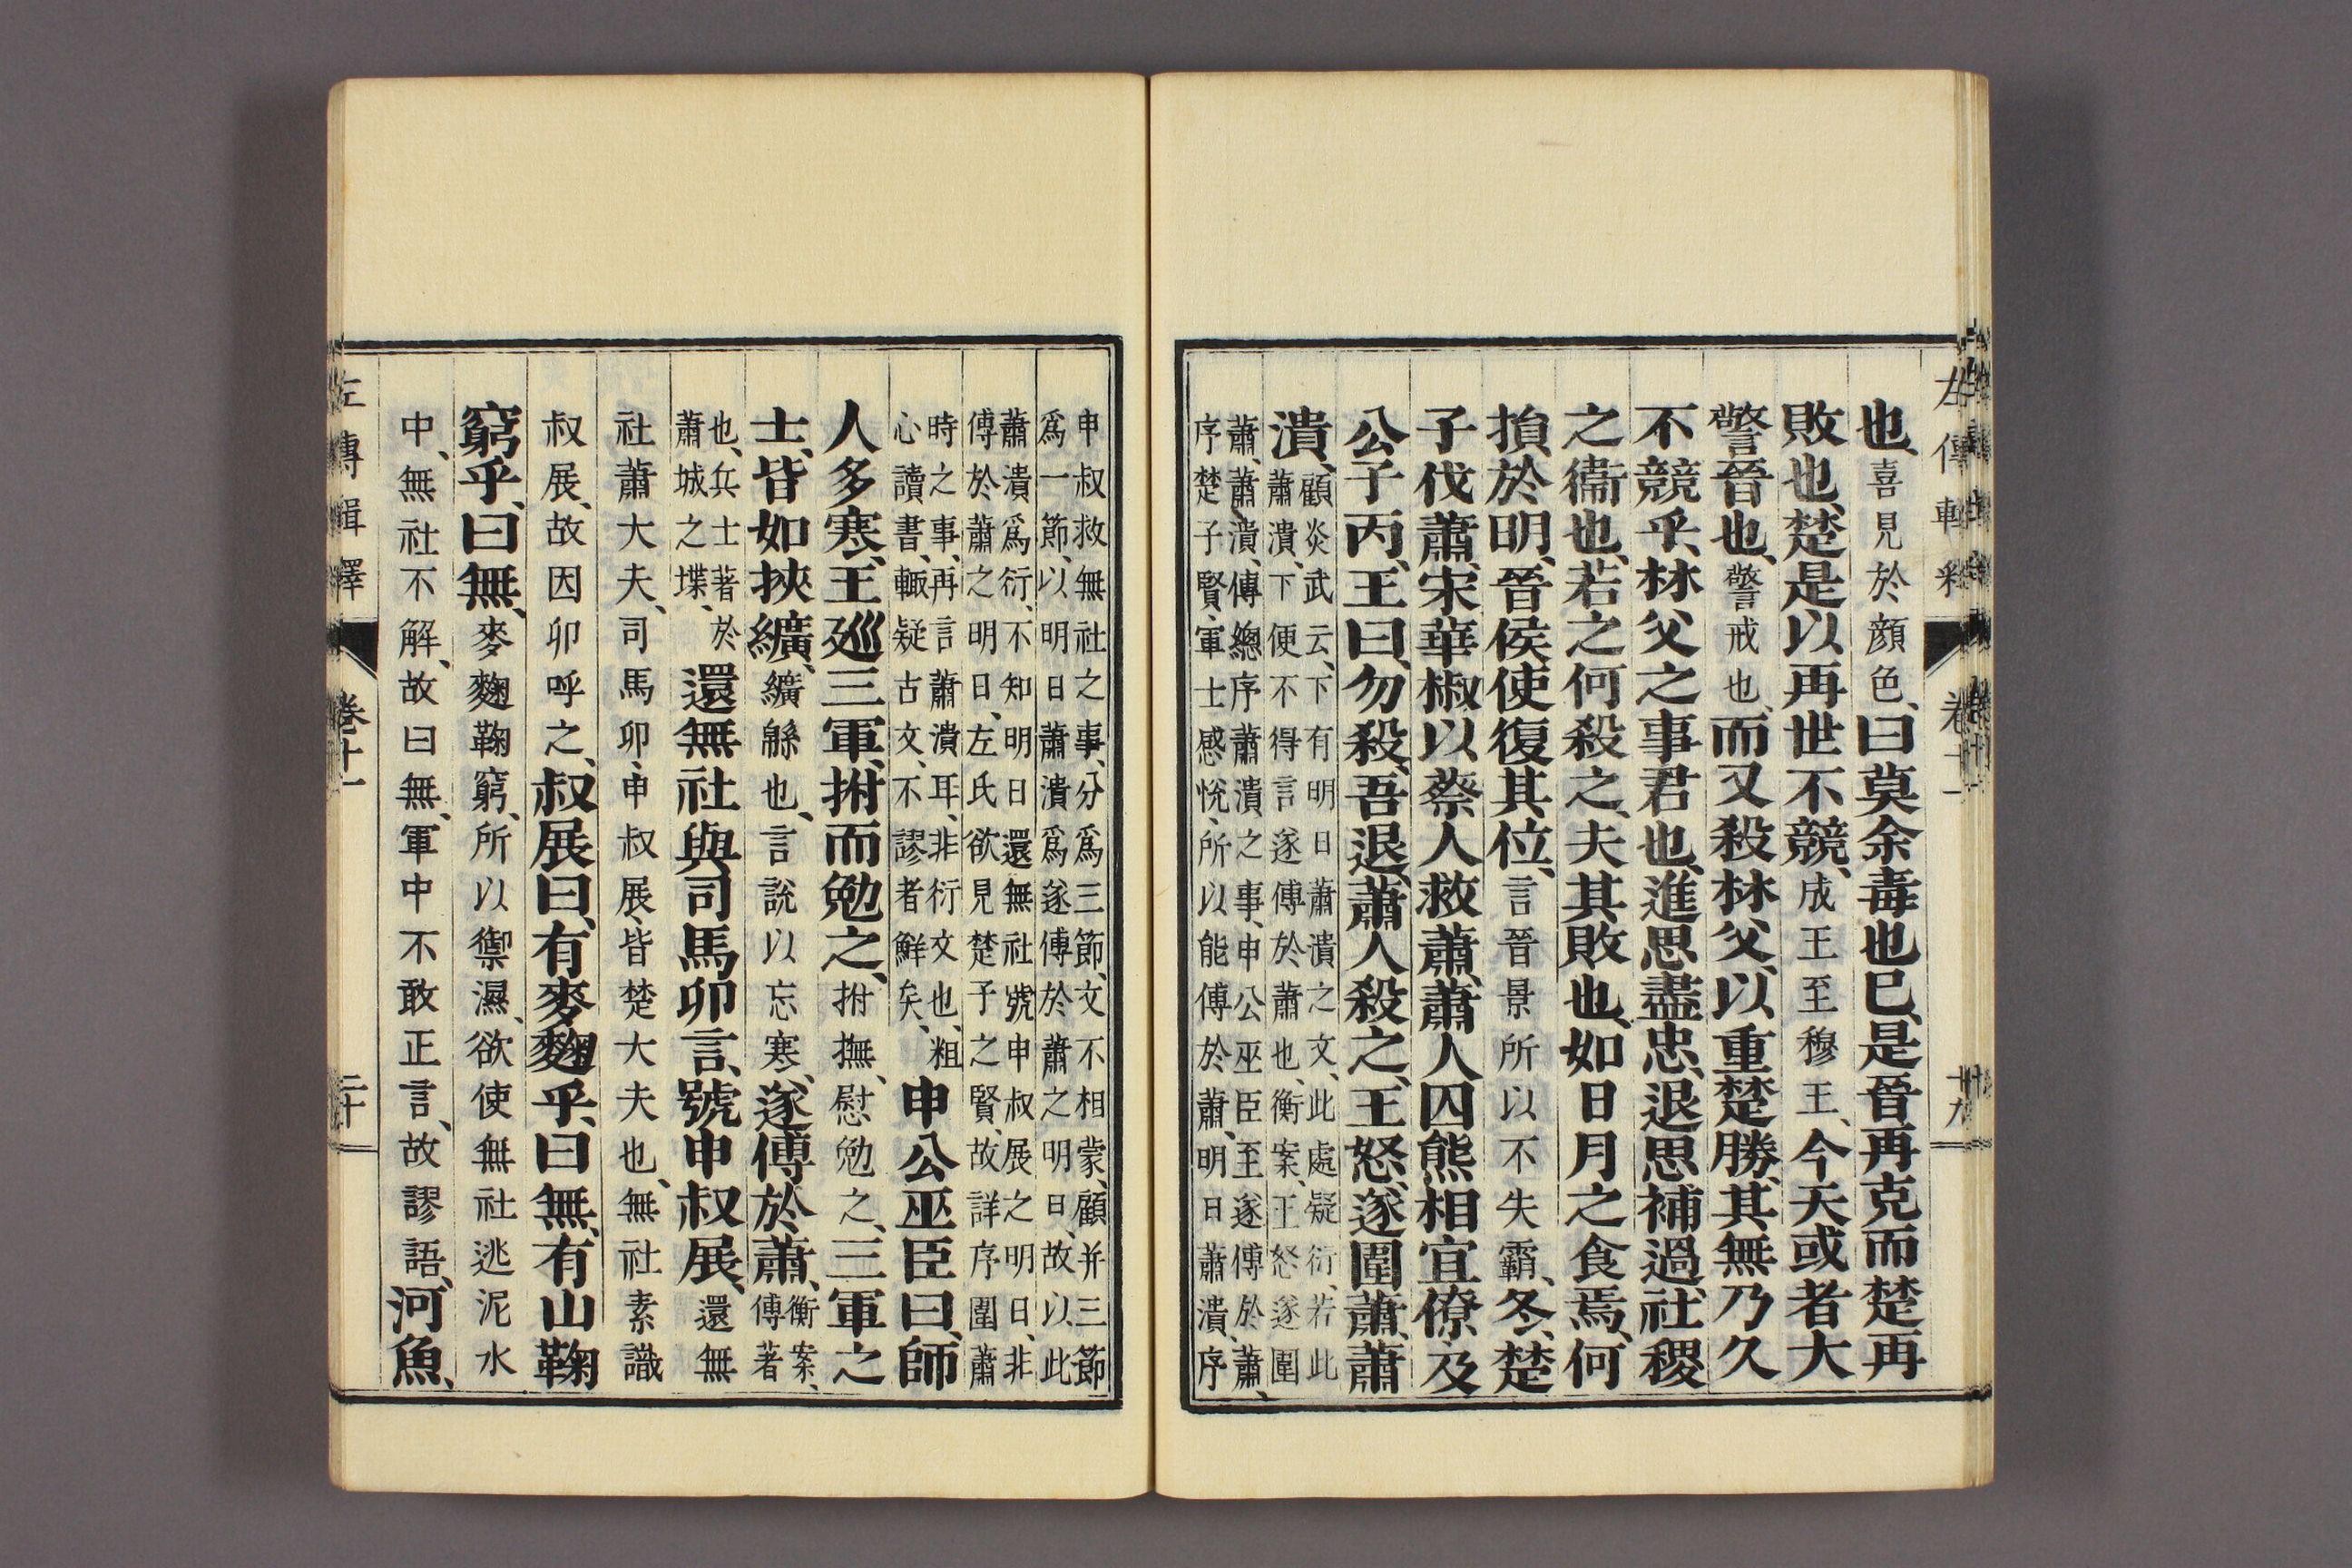 左傳輯釋 卷十一 十九
也、喜見於顏色、曰莫余毒也巳、是晉再克而楚再
敗也、楚是以再世不競、成王至穆王、今天或者大
警晉也、警戒也、而又殺林父、以重楚勝、其無乃久
不競乎、林父之事君也、進思盡忠、退思補過、社稷
之衞也、若之何殺之、夫其敗也、如日月之食焉、何
損於明、晉侯使復其位、言晉景所以不失霸、冬、楚
子伐蕭、宋華椒以蔡人救蕭、蕭人囚熊相宜僚、及
公子丙、王曰、勿殺、吾退、蕭人殺之、王怒、遂圍蕭、蕭
潰、顧炎武云、下有明日蕭潰之文、此處疑衍、若此
蕭潰、下便不得言遂傅於蕭也、衡案、王怒遂圍
蕭、蕭潰、傳總序蕭潰之事、申公巫臣至遂傅於蕭、
序楚子賢、軍士感悅、所以能傅於蕭、明日蕭潰、序
申叔救無社之事、分爲三節、文不相蒙、顧并三節
爲一節、以明日蕭潰爲遂傅於蕭之明日、故以此
蕭潰爲衍、不知明日還無社號申叔展之明日、非
傅於蕭之明日、左氏欲見楚子之賢、故詳序圍蕭
時之事、再言蕭潰耳、非衍文也、粗
心讀書、輒疑古文、不謬者鮮矣、
申公巫臣曰、師
人多寒、王巡三軍、拊而勉之、拊撫、慰勉之、三軍之
士、皆如挾纊、纊緜也、言說以忘寒、遂傅於蕭、衡案、
傅著
也、兵士著於
蕭城之堞、
還無社與司馬卯言、號申叔展、還無
社蕭大夫、司馬卯、申叔展、皆楚大夫也、無社素識
叔展、故因卯呼之、叔展曰、有麥麴乎、曰無、有山鞠
窮乎、曰無、麥麴鞠窮、所以禦濕、欲使無社逃泥水
中、無社不解、故曰無、軍中不敢正言、故謬語、河魚、
左傳輯釋 卷十一 二十